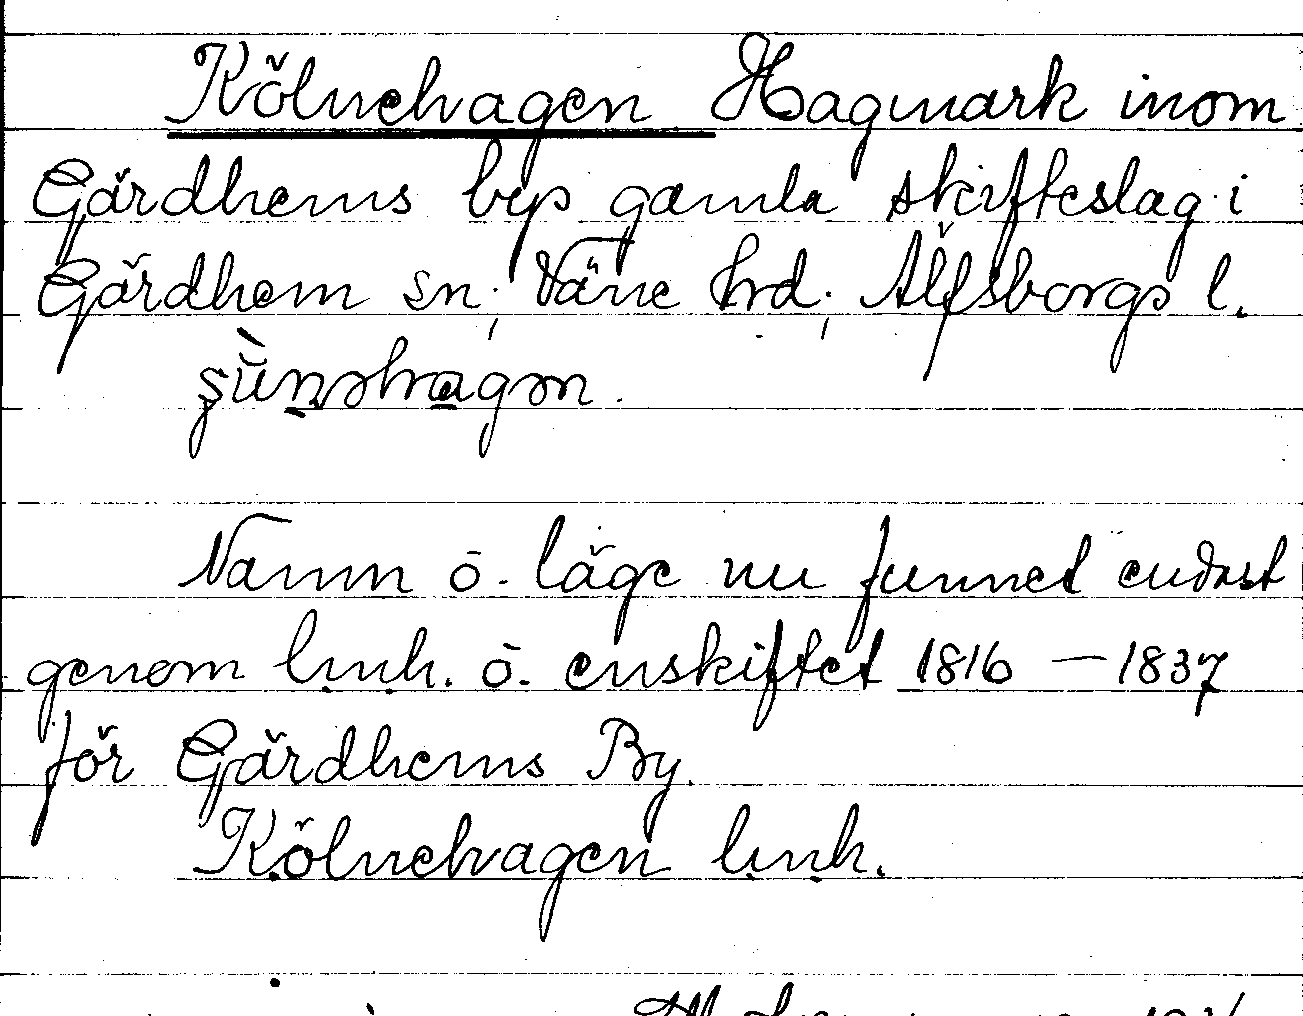 Kölnehagen Hagmark inom
Gärdhems bys gamla skifteslag i
Gärdhem sn; Väne hrd; Älfsborgs l.
Namn o. läge nu funnet endast
genom lmh. o. enskiftet 1816 — 1837
för Gärdhems By.
Kölnehagen lmh.